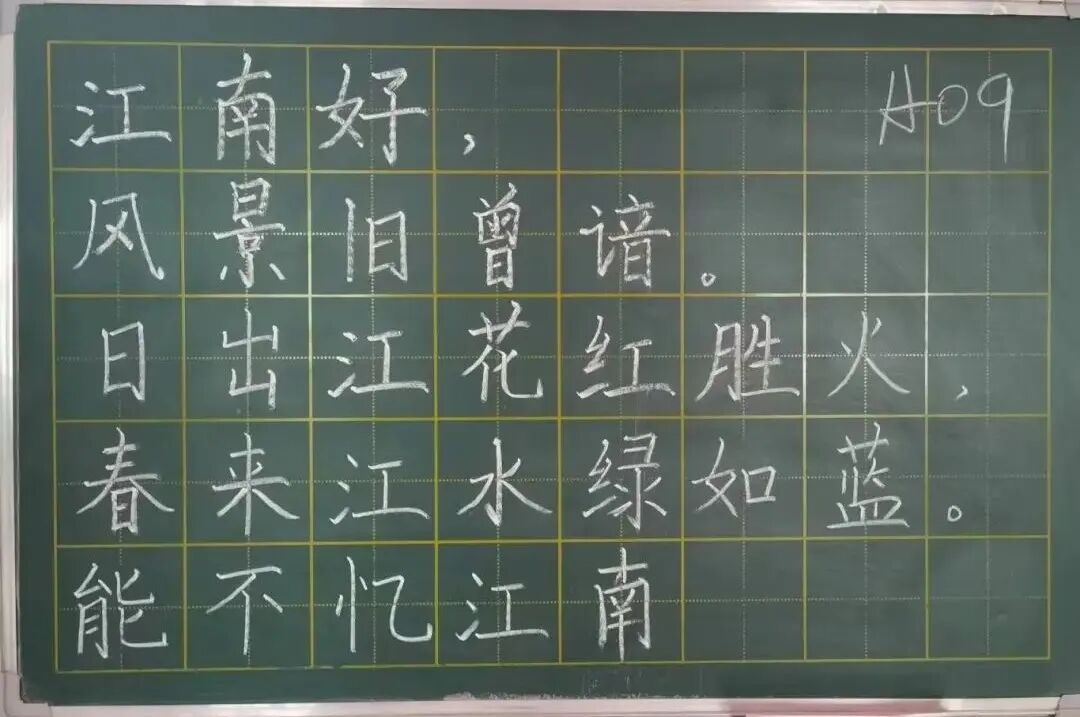 江南好， A09
风景旧曾谙。
日出江花红胜火，
春来江水绿如蓝。
能不忆江南